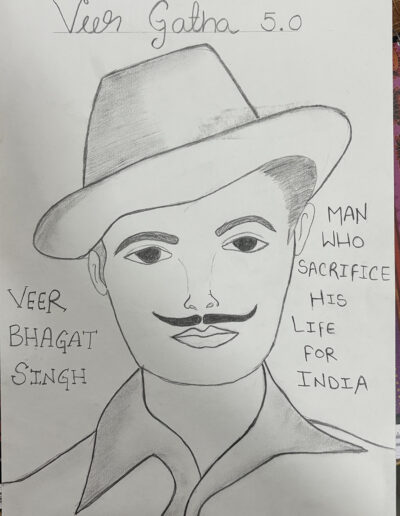 Veer Gatha 5.0
VEER
BHAGAT
SINGH
MAN
WHO
SACRIFICE
HIS
LIFE
FOR
INDIA